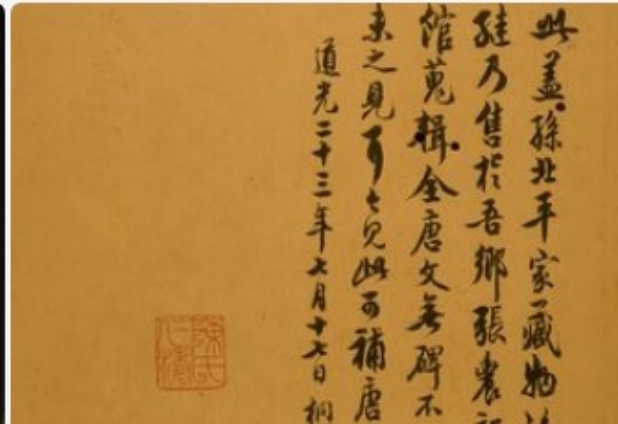 此蓋孫北平家藏物
乃售於吾鄉張
館蒐輯全唐文無碑不
未之見可七見此可補唐
道光二十三年七月十七日桐